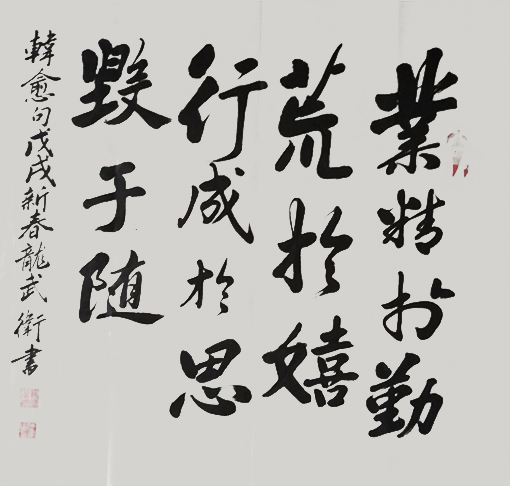 業精於勤
荒於嬉
行成於思
毀于随
韓愈句戊戌新春龍武衛書